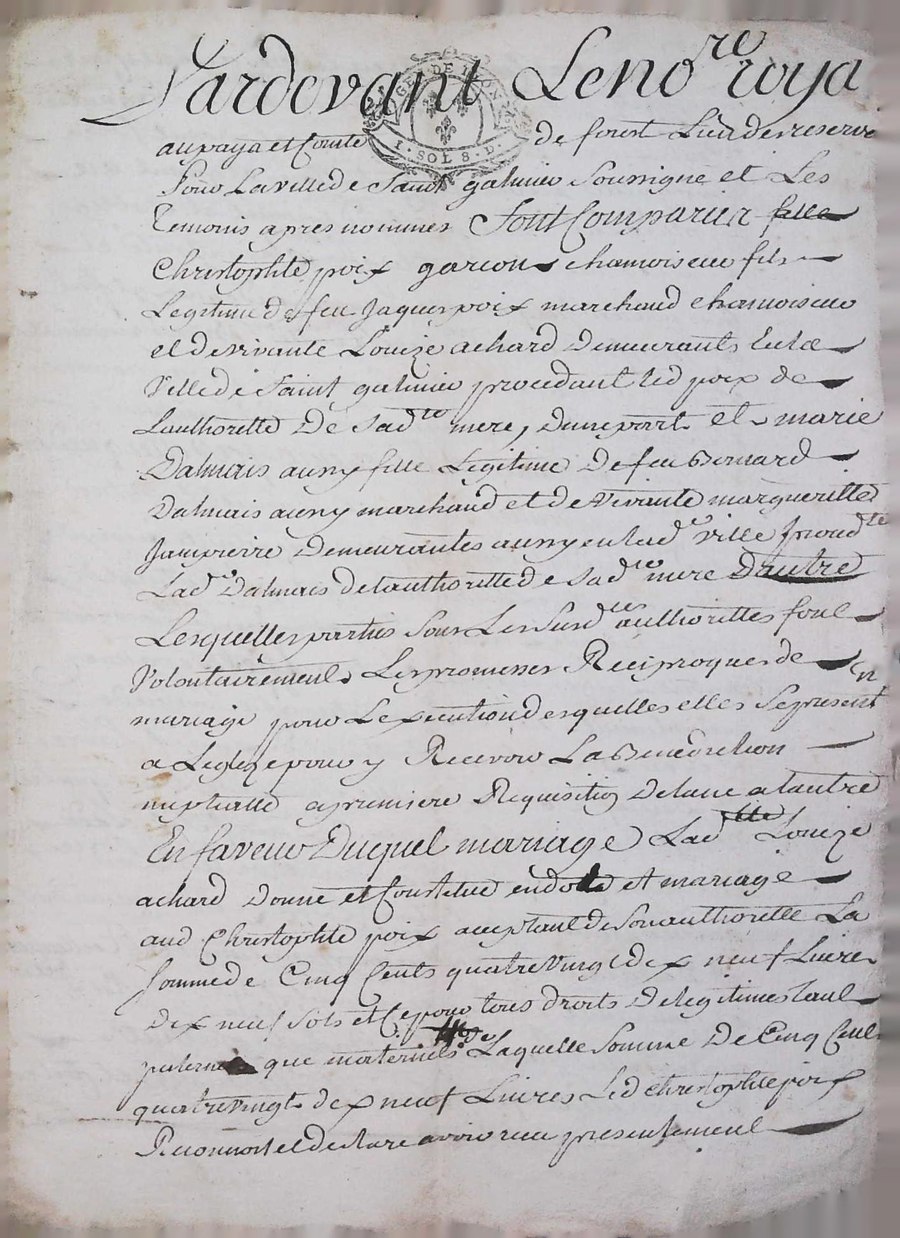 Pardevant Le no.re roya
G. DE LYON
1. SOL 8. D.
au pays et Comté de forest Lieu de reserve
Pour La ville de Saint galmier Soussigne et Les
temoins apres nommes Sont Comparûs
Christophle poix garcon chamoiseur fils
Legitime de feu Jaques poix marchand chamoiseur
et de vivante Louize achard Demeurants en la
Ville de Saint galmier procedant led poix de
Lauthoritté De Sad.te mere, Dune part et marie
Dalmais aussy fille Legitime De feu Bernard
Dalmais aussy marchand et de vivante margueritte
Janpierre Demeurantes aussy en lad.e ville procd.te
Lad.e Dalmais de lauthoritté de Sad.te mere Dautre
Lesquelles parties Sous Les Susd.tes authorittes font
Volontairement Les promesses Reciproques de
mariage pour Lexecution desquelles elles Se presentn
a Leglize pour y Recevoir La Benediction
nuptialle a premiere Requisition De lune a lautre
En faveur Duquel mariage Lad.tte Louize
achard Donne et Constitue en dot et mariage
aud Christophle poix acceptant de Son authoritté La
Somme de Cinq Cents quatre Vingt dix neuf Livres
dix neuf Sols et Ce pour tous droits De legitimes tant
paternels que maternels Laquelle Somme De Cinq Cent
quatre Vingt dix neuf Livres Led christophle poix
Reconnoit et declare avoir receu presentement